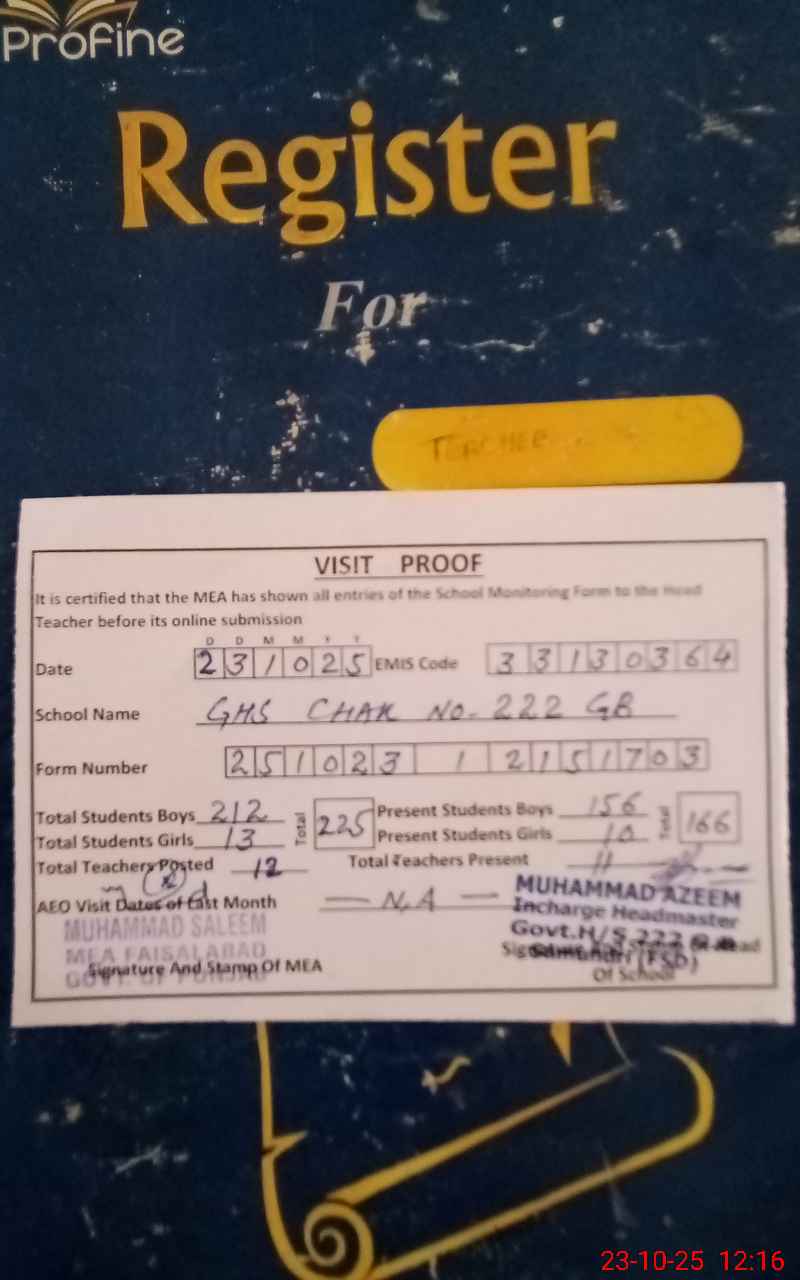 Profine
Register
For
TEACHER
VISIT PROOF
It is certified that the MEA has shown all entries of the School Monitoring Form to the Head
Teacher before its online submission
D D M M Y Y
Date 2 3 1 0 2 5 EMIS Code 3 3 1 3 0 3 6 4
School Name GHS CHAK NO. 222 GB
Form Number 2 5 1 0 2 3 1 2 1 5 1 7 0 3
Total Students Boys 212 Total 225 Present Students Boys 156 Total 166
Total Students Girls 13 Present Students Girls 10
Total Teachers Posted 12 Total Teachers Present 11
AEO Visit Dates of Last Month — N,A —
MUHAMMAD SALEEM
MEA FAISALABAD
GOVT. OF PUNJAB
Signature And Stamp Of MEA
MUHAMMAD AZEEM
Incharge Headmaster
Govt.H/S 222
Samundri (FSD)
Of School
23-10-25 12:16